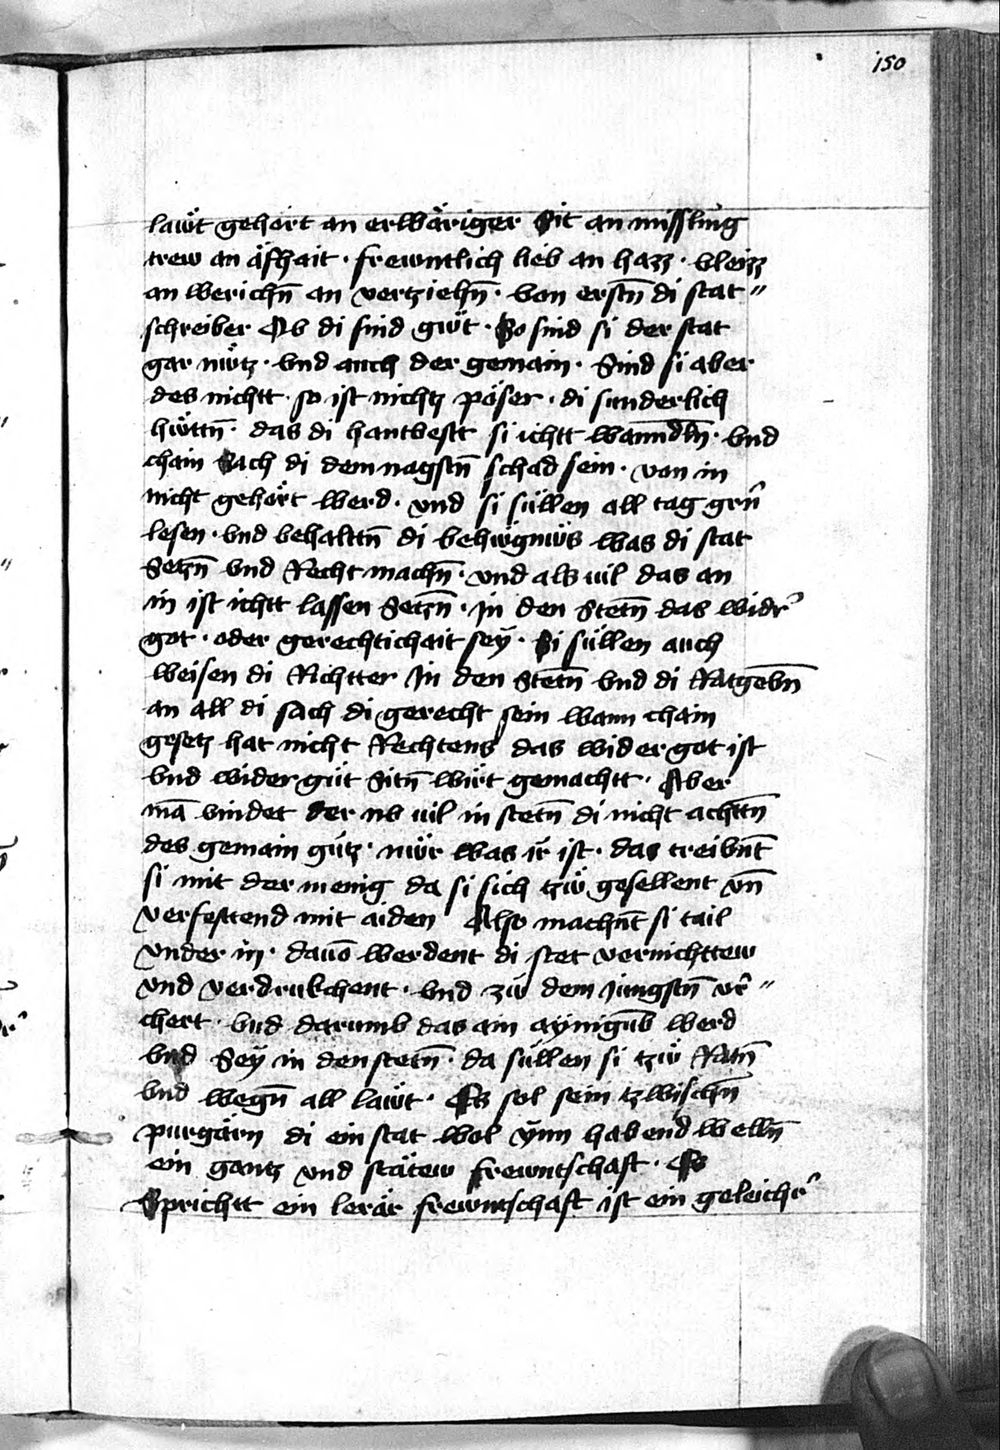 150
lawͤt gehoͤrt an erwaͤriger Sit an missling
trew an aͤfhait · frewntlich lieb an hazz · vleizz
an werichn̄ an vertziehn̄ · Von erstn̄ di stat〃
schreiber Ob di sind guͤt · So sind si der stat
gar nuͤtz · vnd auch der gemain · Sind si aber
des nichtt · so ist nichtz poͤser · di sunderlich
huͤttn̄ · das di hantvestt si ichtt wanndln̄ · vnd
chain Sach di dem nagstn̄ schad sein · von in
nicht gehoͤrt werd · vnd si suͤllen all tag gern̄
lesen · vnd behalttn̄ di behuͤgnuͤs was di stat
Setzn̄ vnd Recht machn̄ · vnd als uil das an
in ist ichtt lassen Setzn̄ · in den Stetn̄ das wider
got · oder gerechtichait seÿ · Si suͤllen auch
weisen di Richtter In den Stetn̄ vnd di Ratgebn̄
an all di sach di gerecht sein wann chain
gesetz hat nicht Rechtens das wider got ist
vnd wider guͤt Sitn̄ wuͤrt gemachtt · Aber
mā vindet der nv uil in stetn̄ di nicht achttn̄
des gemain guͤtz · nuͤr was ir ist · das treibnt̄
si mit der menig da si sich tzuͤ gesellent vn̄
verfesttend mit aiden Also machnt̄ si tail
vnder in · dauō werdent di stet vernichttew
vnd verdrukchent · vnd zuͤ dem Jungstn̄ ver〃
chert · vnd darumb das ain aynigūb werd
vnd Seÿ in den stetn̄ · da suͤllen si tzuͤ Ratn̄
vnd wegn̄ all lawͤt · Es sol sein tzwischn̄
purgaͤrn di ein stat wol ÿnn habend welln̄
ein gantz vnd staͤtew frewntschaft · Es
Sprichtt ein leraͤr frewntschaft ist ein geleicher